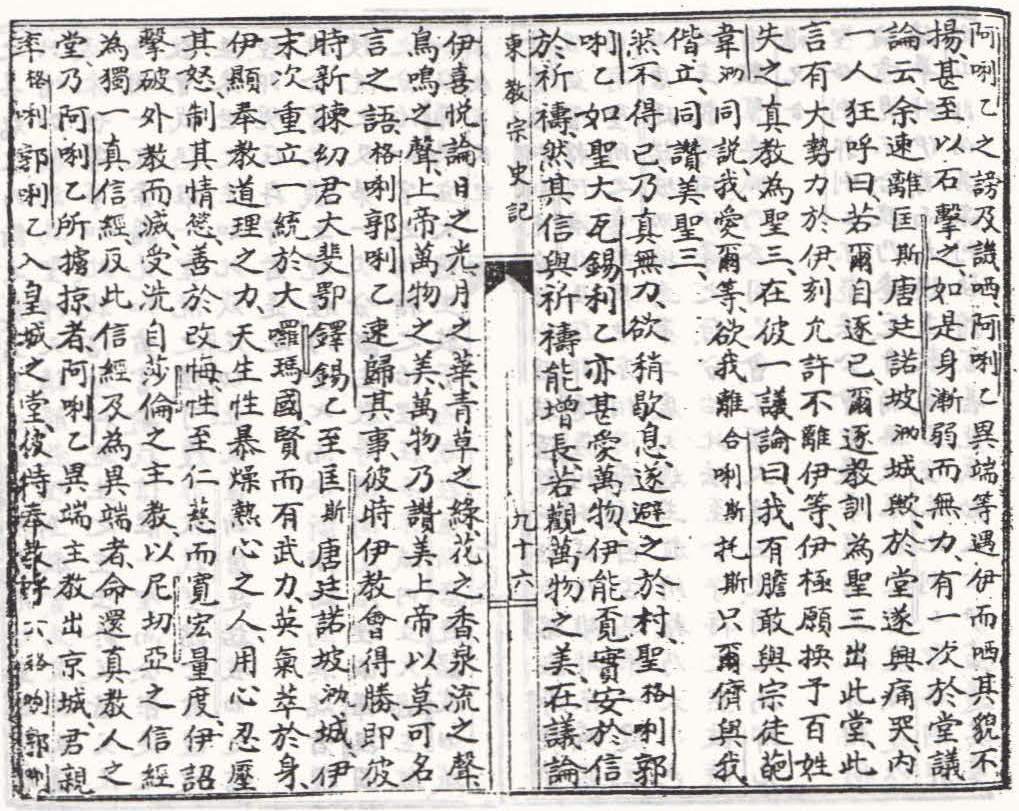 阿唎乙之謗及譏哂、阿唎乙異端等遇伊而哂其貌不
揚、甚至以石擊之、如是身漸弱而無力、有一次於堂議
論云、余速離匡斯唐廷諾坡泐城歟、於堂遂興痛哭、內
一人狂呼曰、若爾自逐已、爾逐教訓為聖三出此堂、此
言有大勢力於伊、刻允許不離伊等、伊極願換予百姓
失之真教為聖三、在彼一議論曰、我有膽敢與宗徒葩
韋泐同說、我愛爾等、欲我離合唎斯托斯只爾儕與我
偕立、同讚美聖三、
然不得已、乃真無力、欲稍歇息、遂避之於村、聖格唎郭
唎乙如聖大瓦錫利乙亦甚愛萬物、伊能覓實安於信
於祈禱、然其信與祈禱能增長、若觀萬物之美、在議論
東教宗史記
九十六
伊喜悅論日之光、月之華、青草之綠、花之香、泉流之聲、
鳥鳴之聲、上帝萬物之美、萬物乃讚美上帝以莫可名
言之語、格唎郭唎乙速歸其事、彼時伊教會得勝、即彼
時新揀幼君大斐鄂鐸錫乙至匡斯唐廷諾坡泐城、伊
末次重立一統於大囉瑪國、賢而有武力、英氣萃於身、
伊顯奉教道理之力、天生性暴燥熱心之人、用心忍壓
其怒、制其情慾、善於改悔、性至仁慈而寬宏量度、伊詔
擊破外教而滅、受洗自莎倫之主教、以尼切亞之信經
為獨一真信經、反此信經及為異端者、命還真教人之
堂、乃阿唎乙所擄掠者、阿唎乙異端主教出京城、君親
率格唎郭唎乙入皇城之堂、彼時奉教